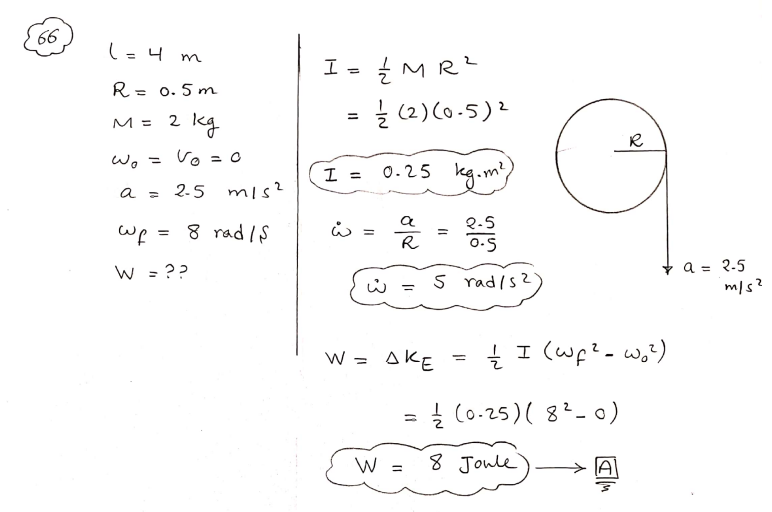 66
l = 4 m
R = 0.5 m
M = 2 kg
ω₀ = V₀ = 0
a = 2.5 m/s²
ωf = 8 rad/s
W = ??
I = ½ M R²
= ½ (2)(0.5)²
I = 0.25 kg.m²
ω̇ = a/R = 2.5/0.5
ω̇ = 5 rad/s²
R
a = 2.5
m/s²
W = ΔKE = ½ I (ωf² - ω₀²)
= ½ (0.25)( 8² - 0)
W = 8 Joule → A